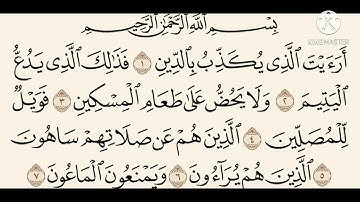 بِسْمِ اللَّهِ الرَّحْمَٰنِ الرَّحِيمِ
أَرَءَيْتَ الَّذِي يُكَذِّبُ بِالدِّينِ ١ فَذَٰلِكَ الَّذِي يَدُعُّ
الْيَتِيمَ ٢ وَلَا يَحُضُّ عَلَىٰ طَعَامِ الْمِسْكِينِ ٣ فَوَيْلٌ
لِّلْمُصَلِّينَ ٤ الَّذِينَ هُمْ عَن صَلَاتِهِمْ سَاهُونَ
٥ الَّذِينَ هُمْ يُرَآءُونَ ٦ وَيَمْنَعُونَ الْمَاعُونَ ٧
KINEMASTER